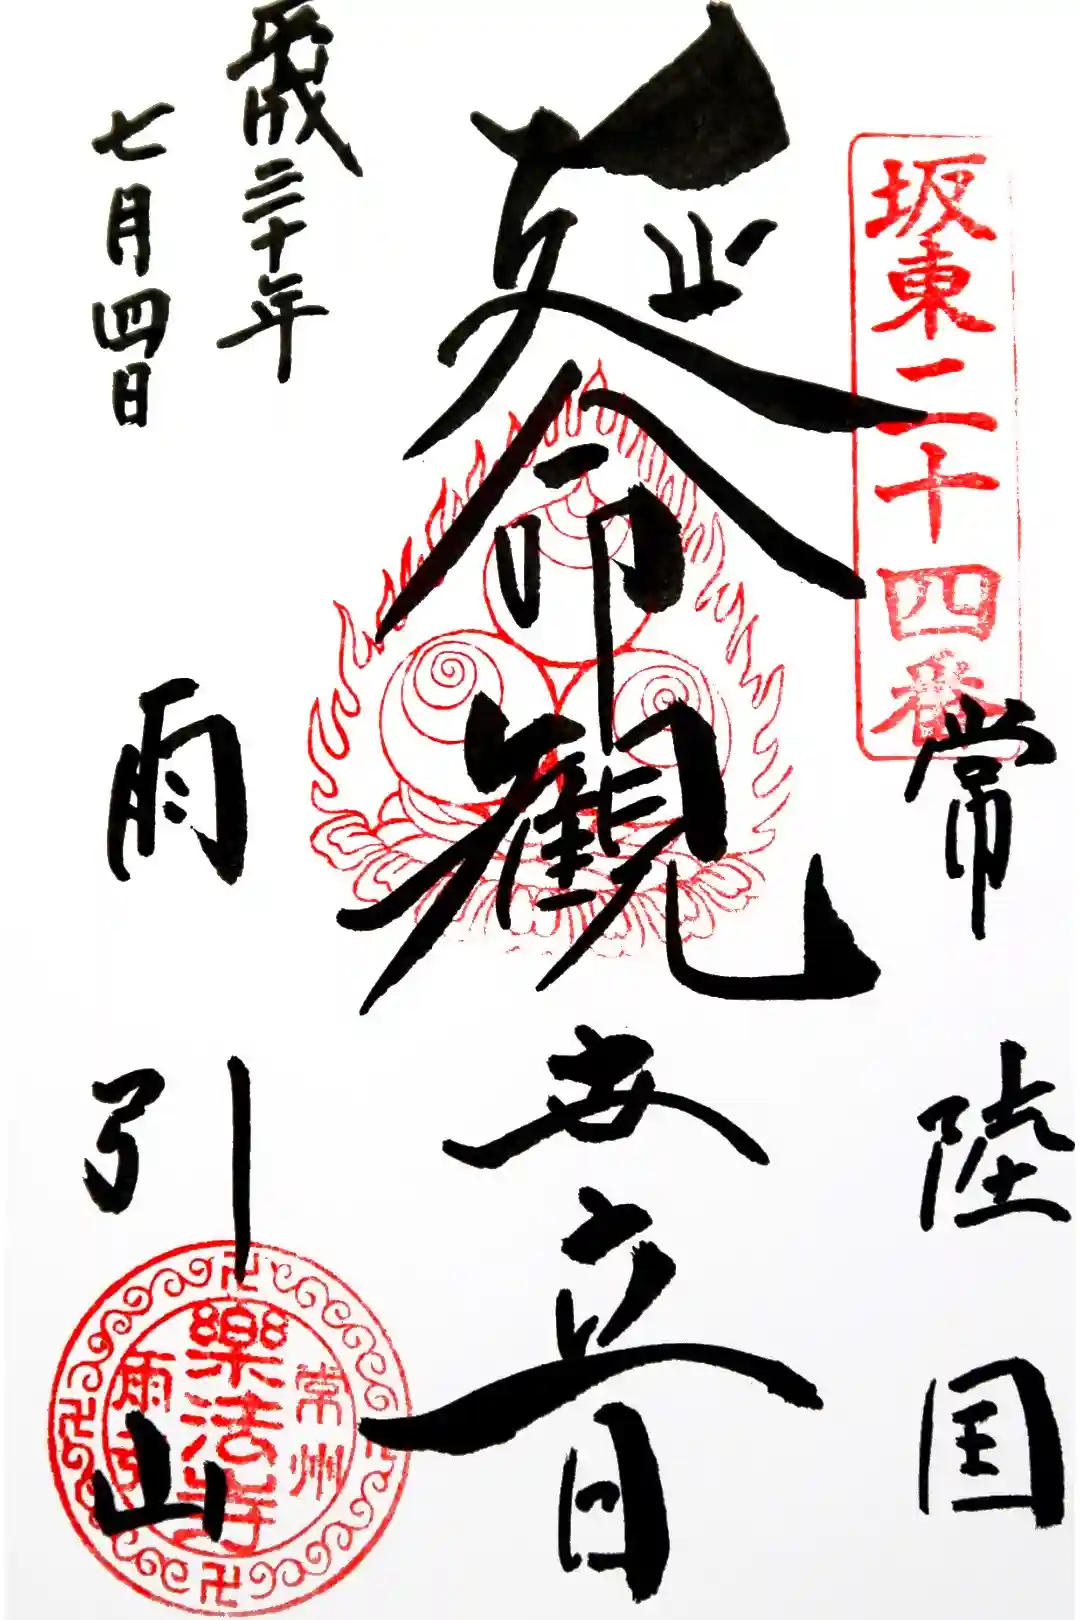 坂東二十四番
常陸国
延命観世音
平成三十年
七月四日
雨引山
常州
樂法寺
雨引